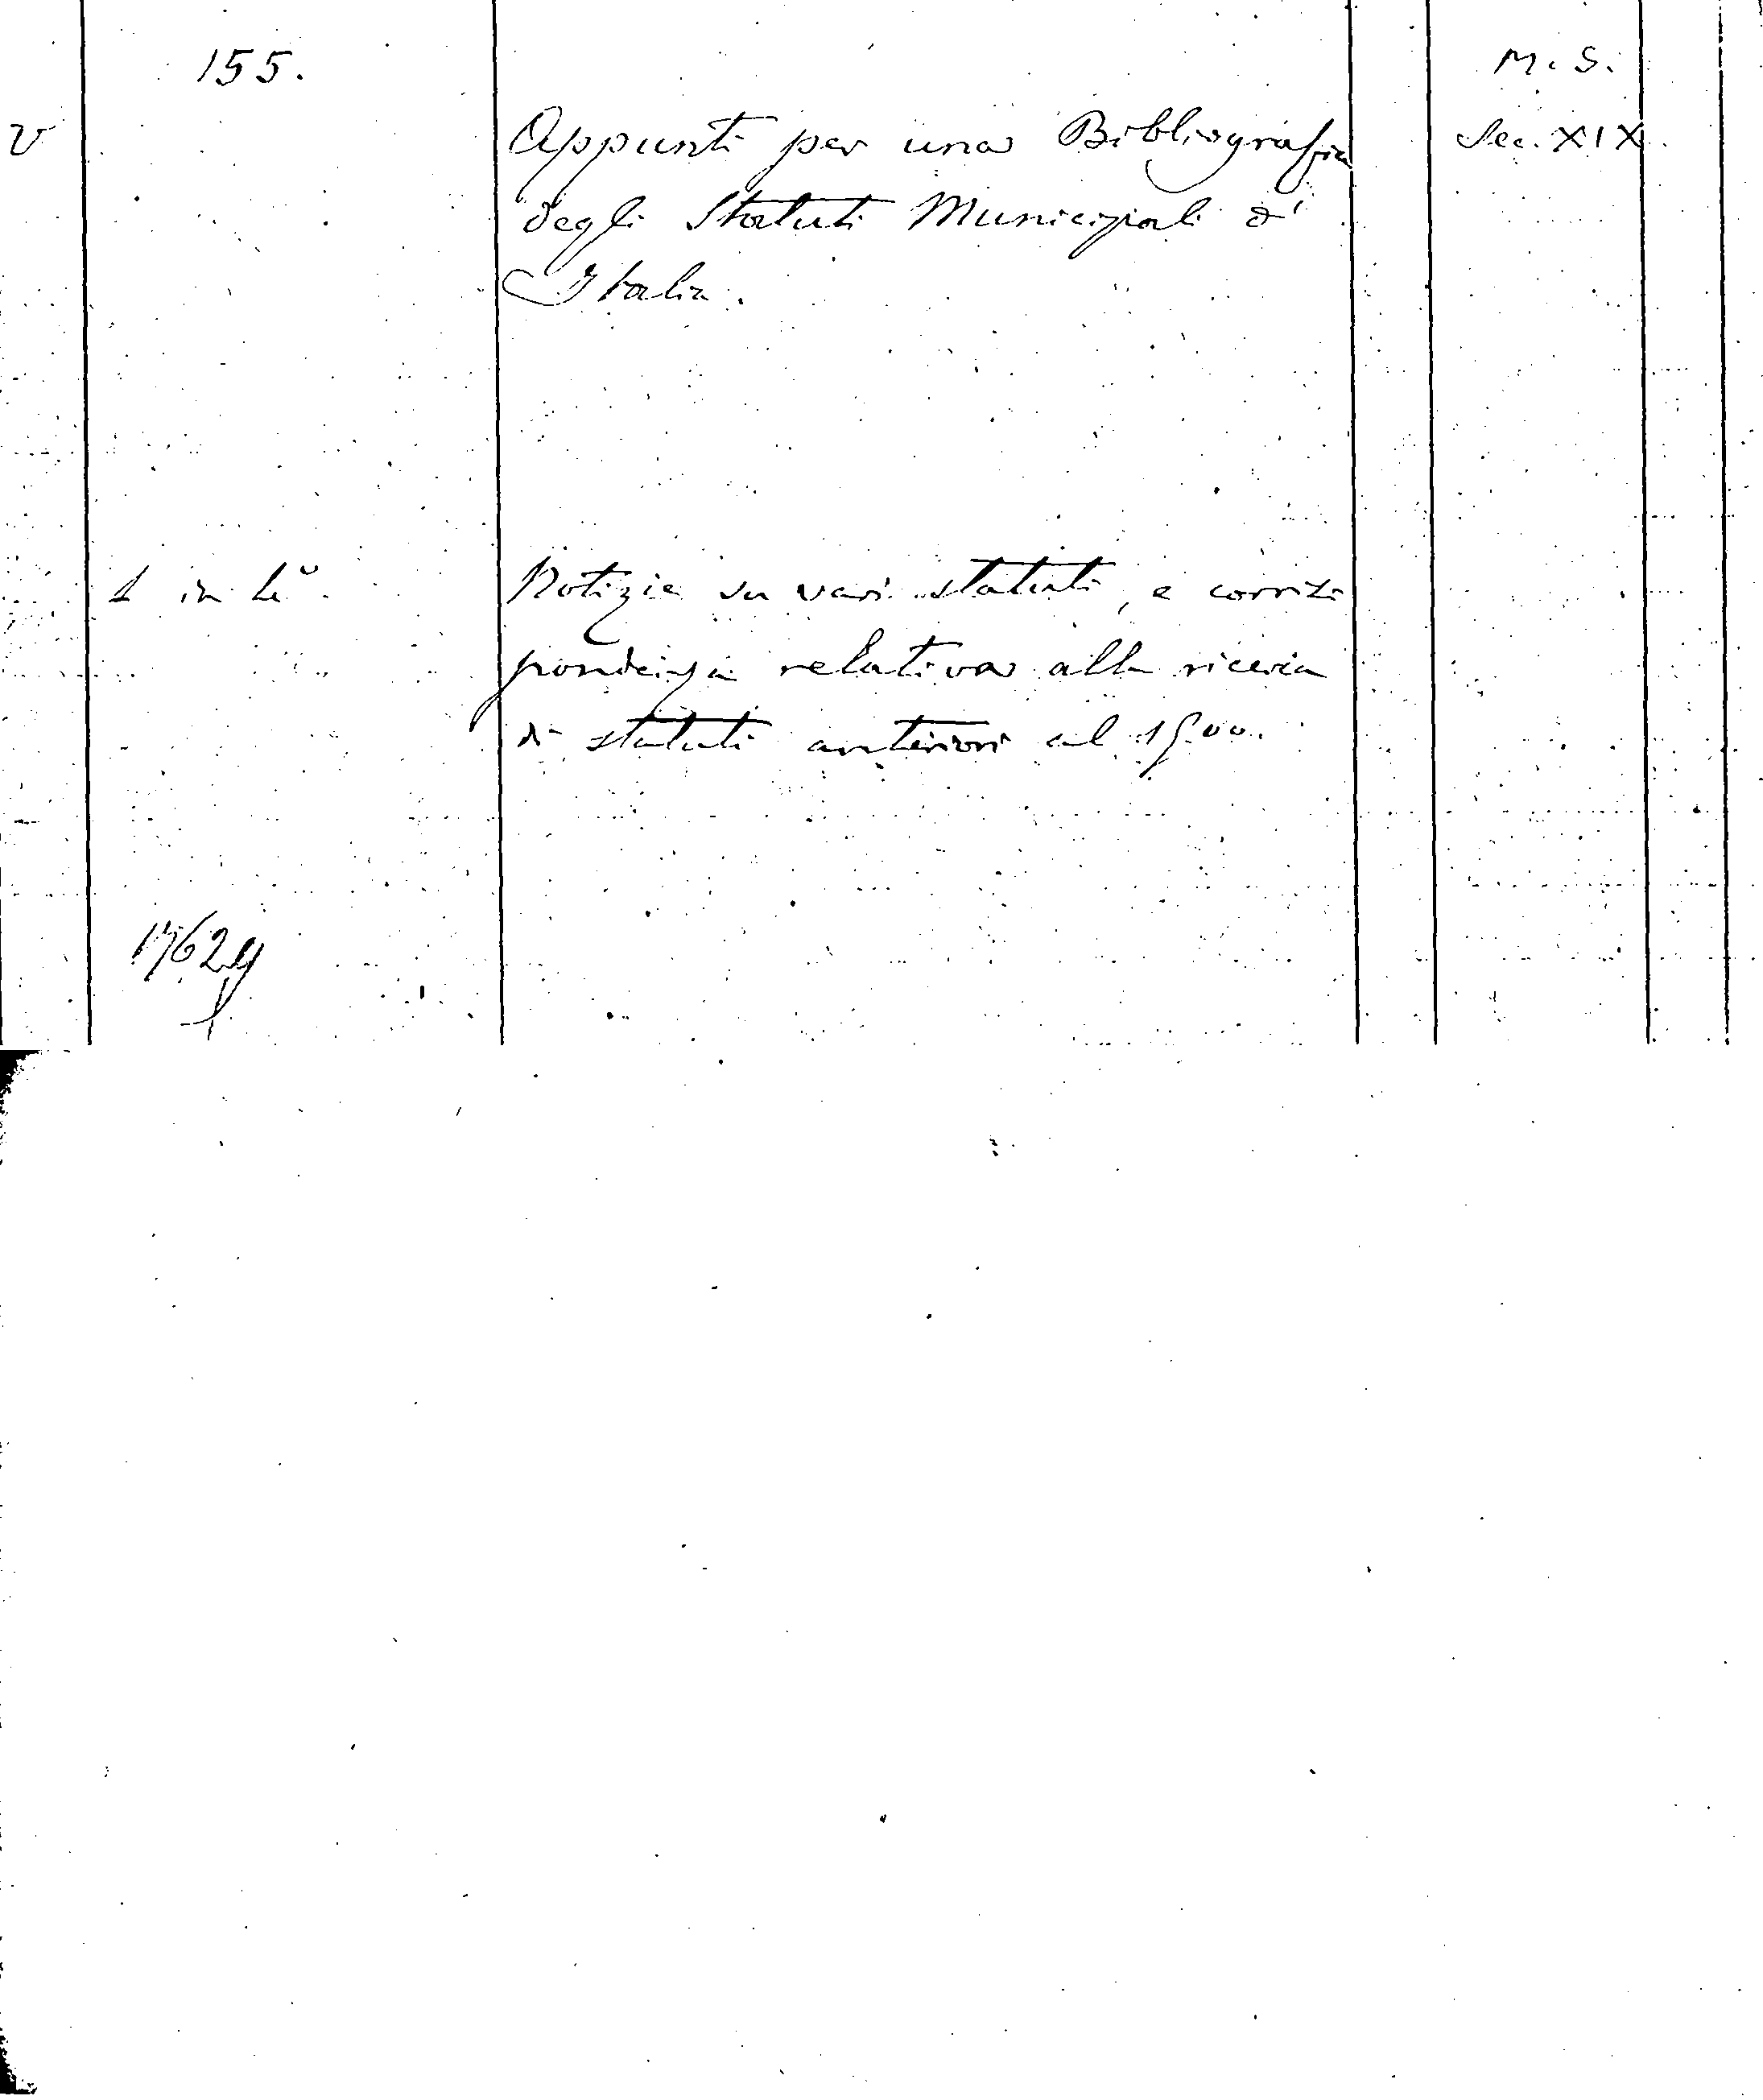 155.
M. S.
V
Appunti per una Bibliografia
Sec. XIX.
degli Statuti Municipali d'
Italia.
1 in 4°.
Notizie su vari statuti, e corris
pondenza relativa alla ricerca
di statuti anteriori al 1500.